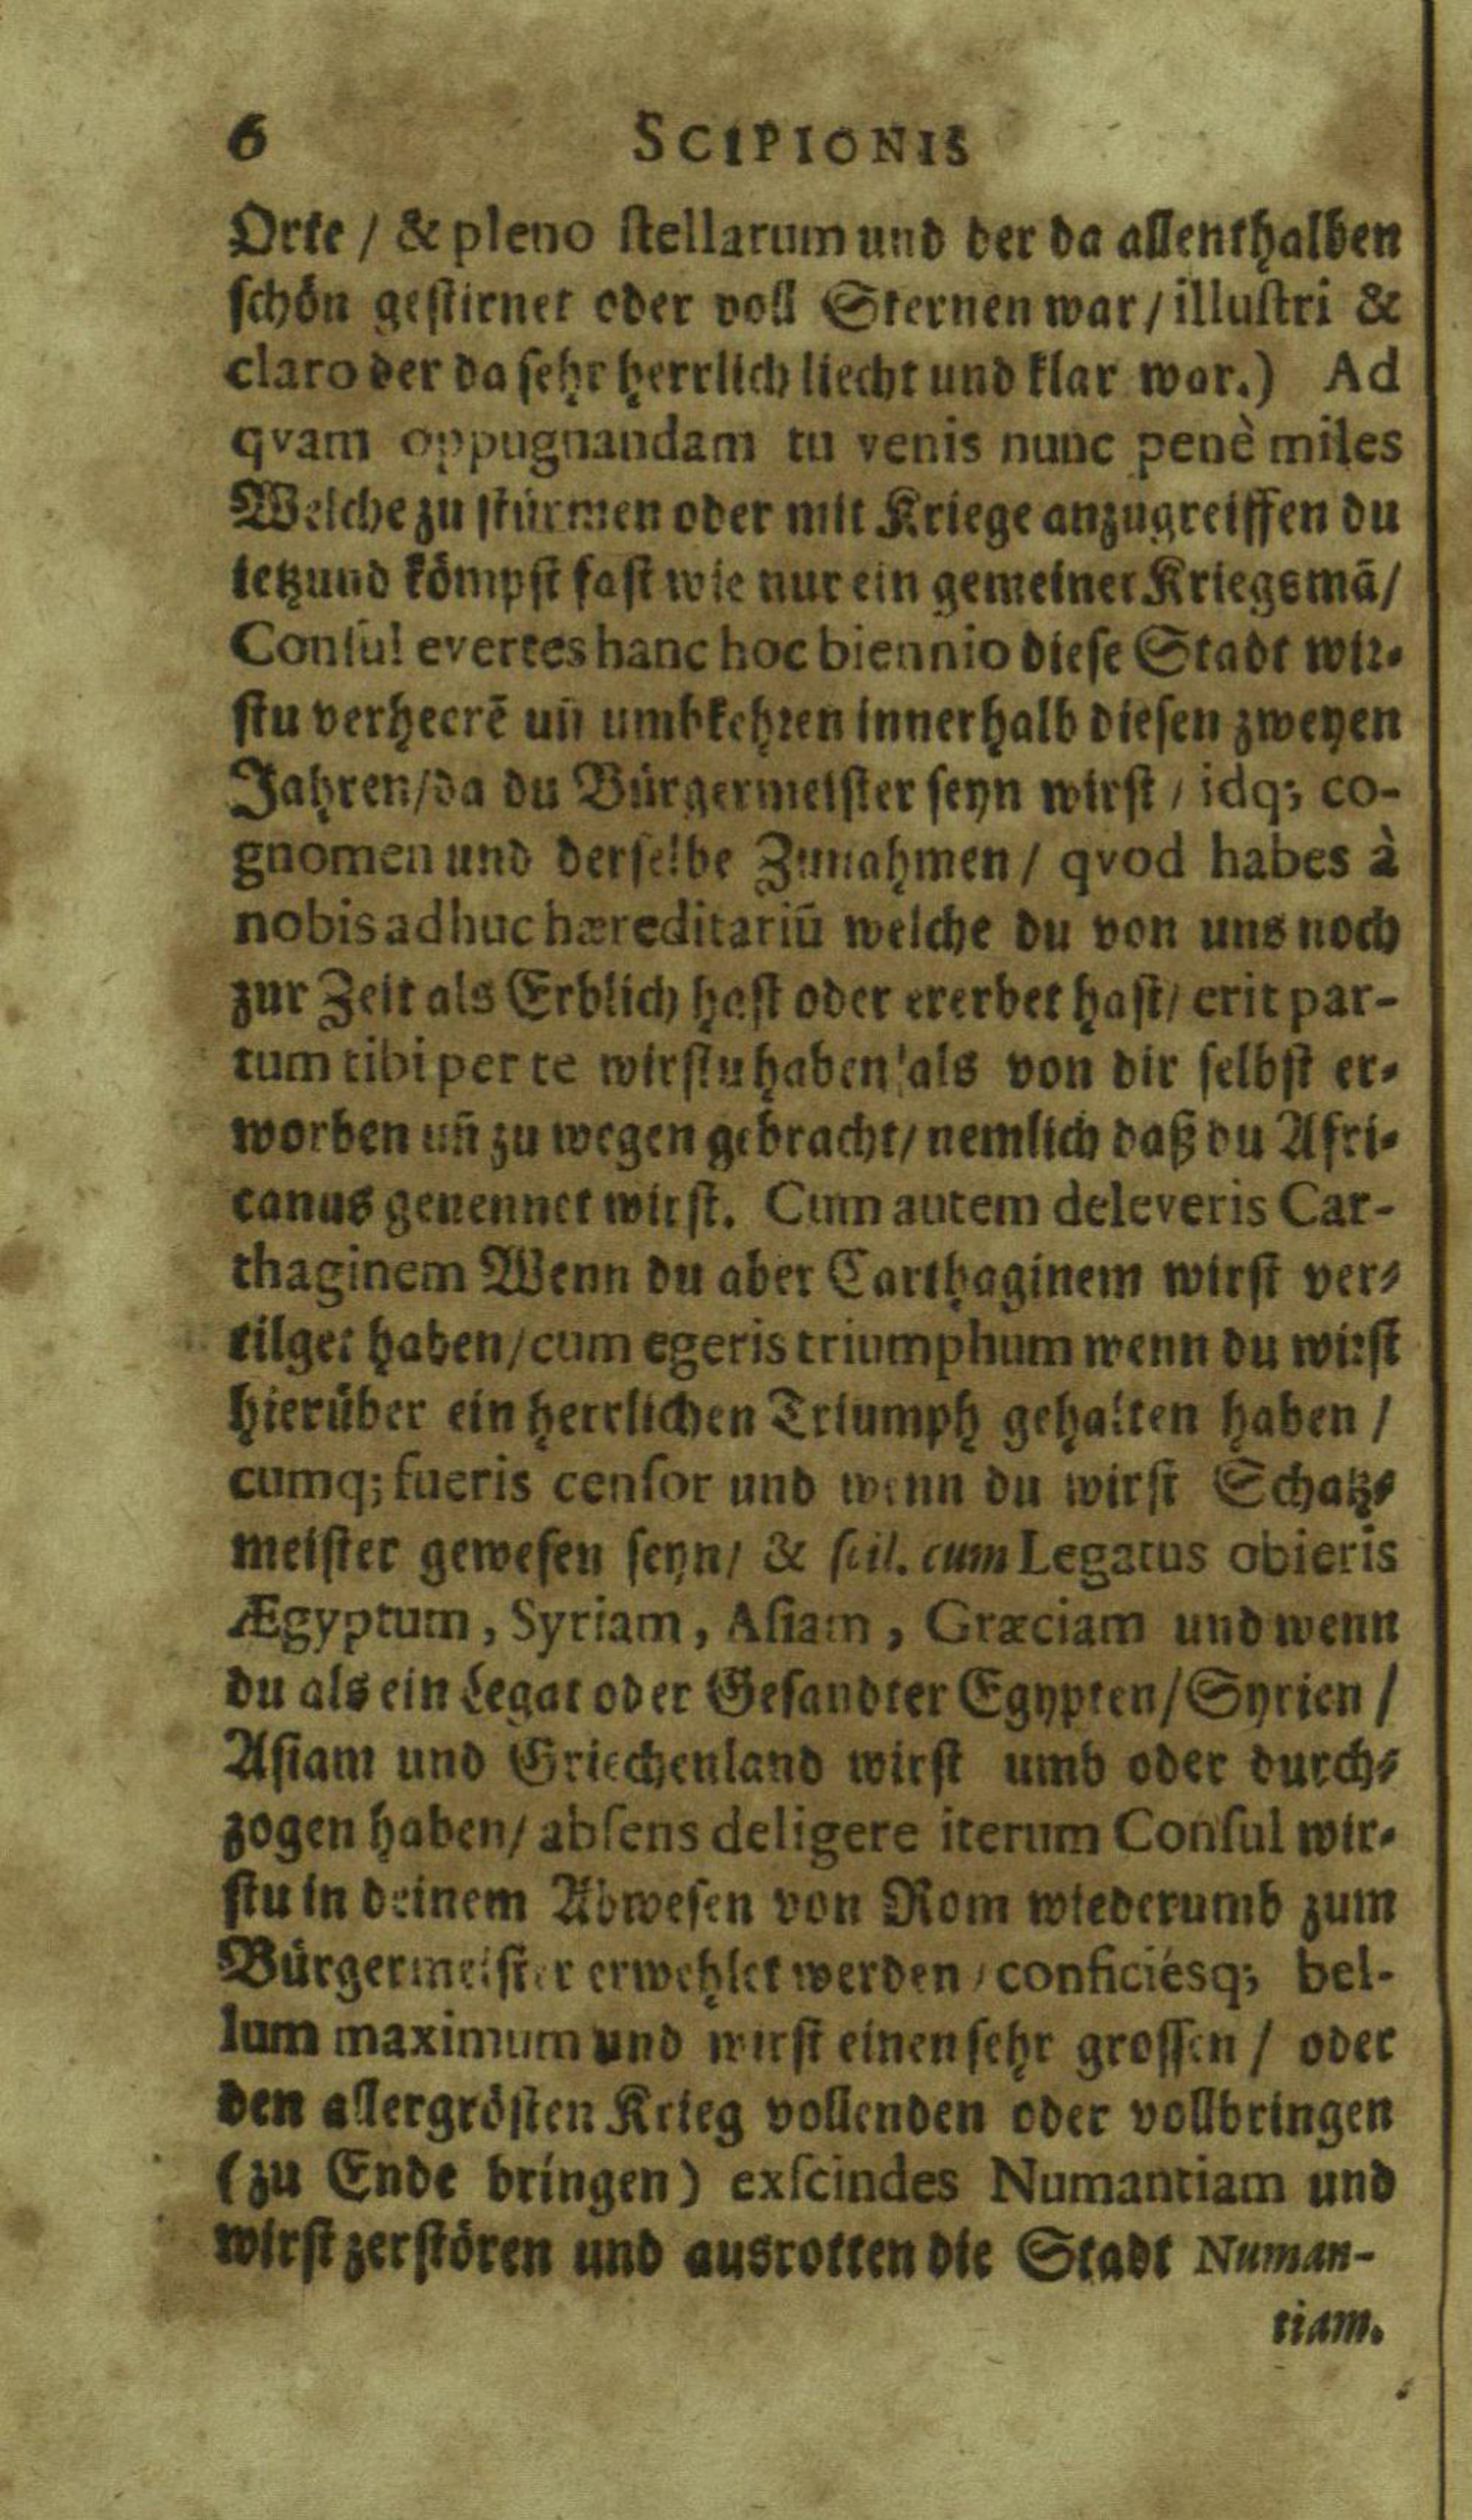 6 SCIPIONIS
Orte / & pleno ſtellarum und der da allenthalben
ſchön geſtirnet oder voll Sternen war / illuſtri &
claro der da ſehr herrlich liecht und klar war.) Ad
qvam oppugnandam tu venis nunc penè miles
Welche zu ſtürmen oder mit Kriege anzugreiffen du
ietzund kömpſt faſt wie nur ein gemeiner Kriegsmã/
Conſul evertes hanc hoc biennio dieſe Stadt wir-
ſtu verheerẽ uñ umbkehren innerhalb dieſen zweyen
Jahren/da du Bürgermeiſter ſeyn wirſt / idq; co-
gnomen und derſelbe Zunahmen / qvod habes à
nobis adhuc hæreditariũ welche du von uns noch
zur Zeit als Erblich haſt oder ererbet haſt/ erit par-
tum tibi per te wirſtu haben/als von dir ſelbſt er-
worben uñ zu wegen gebracht/ nemlich daß du Afri-
canus genennet wirſt. Cum autem deleveris Car-
thaginem Wenn du aber Carthaginem wirſt ver-
tilget haben/cum egeris triumphum wenn du wirſt
hierüber ein herrlichen Triumph gehalten haben /
cumq; fueris cenſor und wenn du wirſt Schatz-
meiſter geweſen ſeyn/ & ſcil. cum Legatus obieris
Ægyptum, Syriam, Aſiam, Græciam und wenn
du als ein Legat oder Geſandter Egypten/Syrien /
Aſiam und Griechenland wirſt umb oder durch-
zogen haben/ abſens deligere iterum Conſul wir-
ſtu in deinem Abweſen von Rom wiederumb zum
Bürgermeiſter erwehlet werden / conficiésq; bel-
lum maximum und wirſt einen ſehr groſſen / oder
den allergröſten Krieg vollenden oder vollbringen
(zu Ende bringen) exſcindes Numantiam und
wirſt zerſtören und ausrotten die Stadt Numan-
tiam.